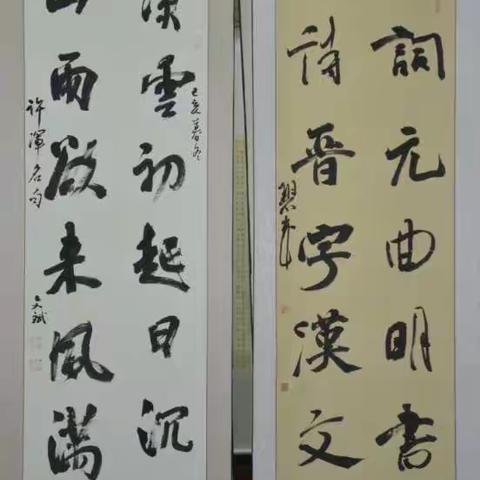 己亥暮冬
溪雲初起日沉
山雨欲来風滿
許渾名句
文斌
詞元曲明書
詩晉字漢文